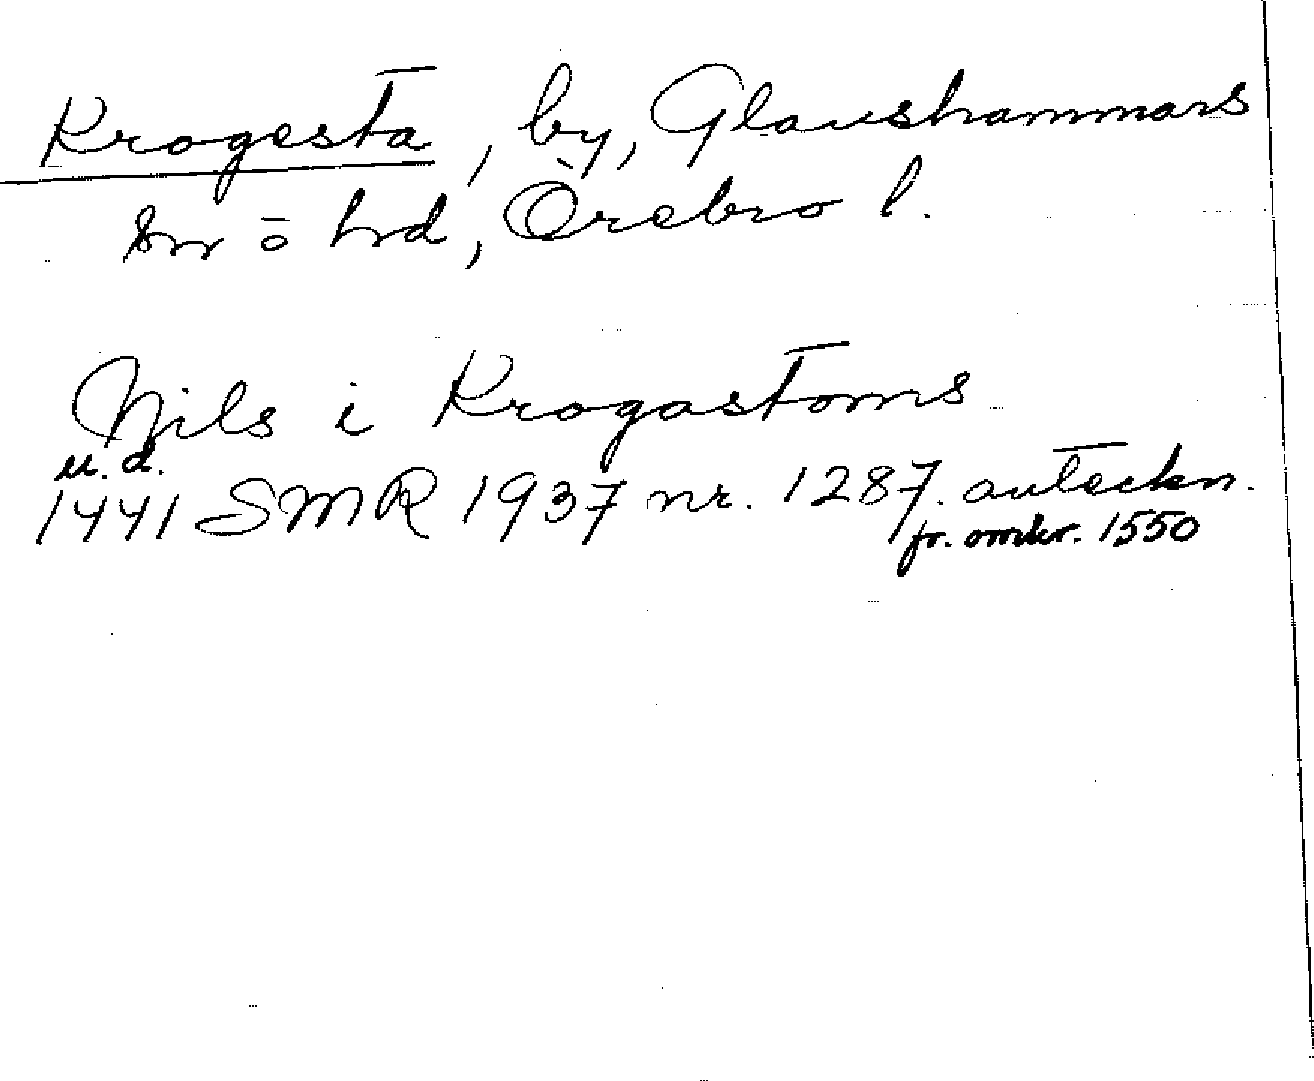 Krogesta, by, Glanshammars
sn o hd, Örebro l.
Nils i Krogastoms
u.d.
1441 SMR 1937 nr. 1287. anteckn.
fr. omkr. 1550